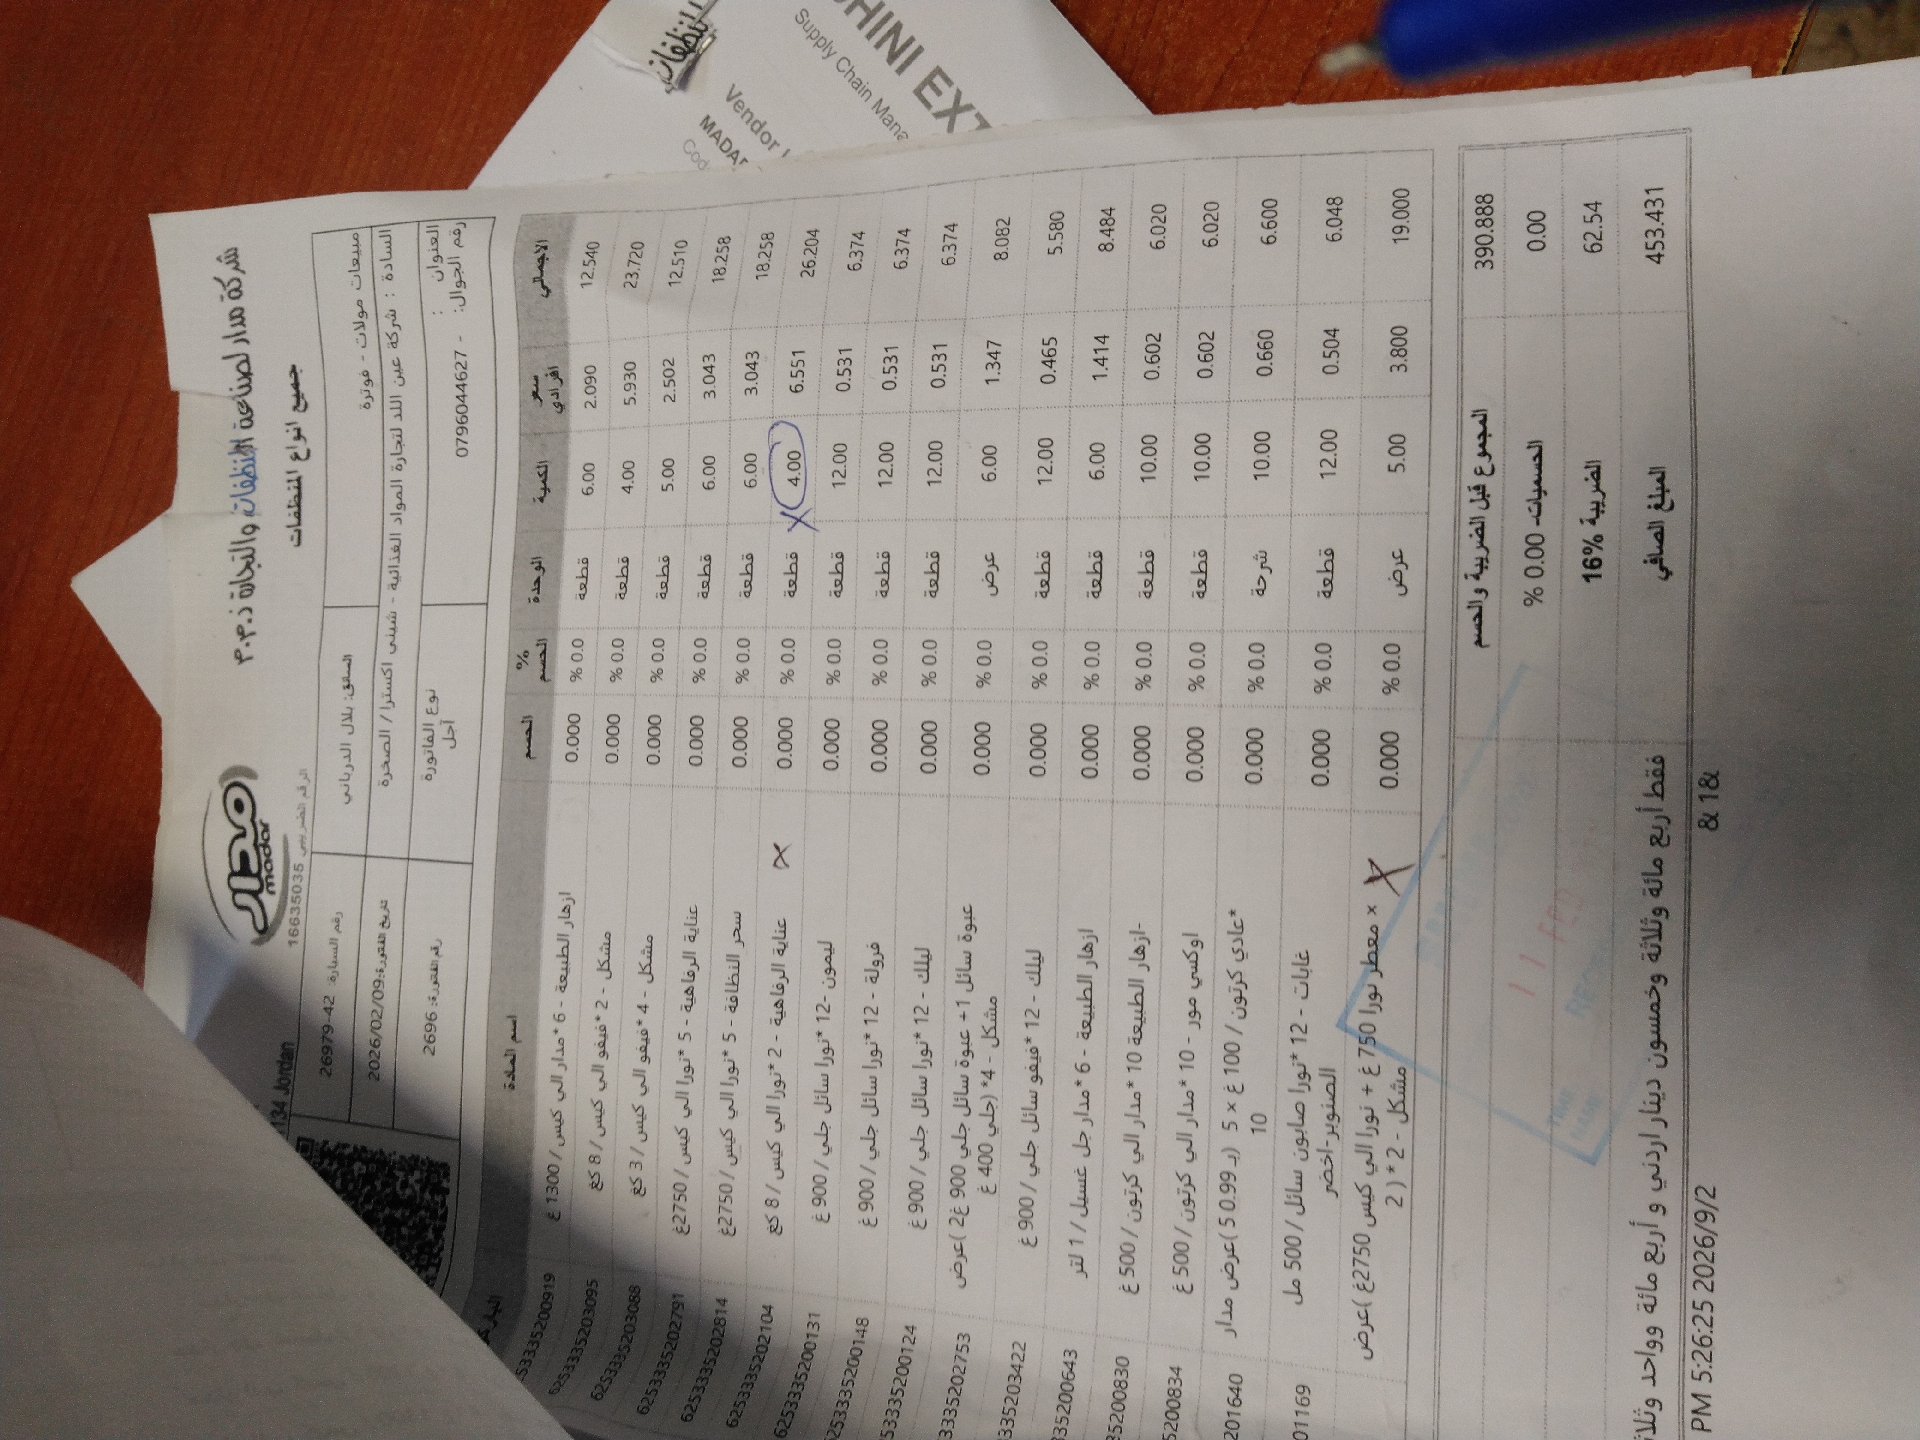 شركة مدار لصناعة المنظفات والتجارة ذ.م.م
جميع انواع المنظفات
مدار
madar
الرقم الضريبي 16635035
134 Jordan
مبيعات مولات - فوترة
السائق: بلال الدرباني
رقم السيارة: 26979-42
السادة : شركة عين اللد لتجارة المواد الغذائية - شيني اكسترا / الصخرة
تاريخ الفتورة: 2026/02/09
العنوان :
رقم الجوال: - 0796044627
نوع الفاتورة
آجل
رقم الفتورة: 2696
اسم المادة الحسم الحسم % الوحدة الكمية سعر افرادي الاجمالي
5333352009​19 ازهار الطبيعة - 6 *مدار الي كيس / 1300 غ 0.000 % 0.0 قطعة 6.00 2.090 12.540
6253335203095 مشكل - 2 *فيفو الي كيس / 8 كغ 0.000 % 0.0 قطعة 4.00 5.930 23.720
6253335203088 مشكل - 4 *فيفو الي كيس / 3 كغ 0.000 % 0.0 قطعة 5.00 2.502 12.510
6253335202791 عناية الرفاهية - 5 *نورا الي كيس / 2750غ 0.000 % 0.0 قطعة 6.00 3.043 18.258
6253335202814 سحر النظافة - 5 *نورا الي كيس / 2750غ 0.000 % 0.0 قطعة 6.00 3.043 18.258
6253335202104 عناية الرفاهية - 2 *نورا الي كيس / 8 كغ x 0.000 % 0.0 قطعة X 4.00 6.551 26.204
6253335200131 ليمون -12 *نورا سائل جلي / 900 غ 0.000 % 0.0 قطعة 12.00 0.531 6.374
253335200148 فرولة - 12 *نورا سائل جلي / 900 غ 0.000 % 0.0 قطعة 12.00 0.531 6.374
53335200124 ليلك - 12 *نورا سائل جلي / 900 غ 0.000 % 0.0 قطعة 12.00 0.531 6.374
3335202753 عبوة سائل 1+ عبوة سائل جلي 900 غ2 )عرض 0.000 % 0.0 عرض 6.00 1.347 8.082
مشكل - 4* (جلي 400 غ
335203422 ليلك - 12 *فيفو سائل جلي / 900 غ 0.000 % 0.0 قطعة 12.00 0.465 5.580
335200643 ازهار الطبيعة - 6 *مدار جل غسيل / 1 لتر 0.000 % 0.0 قطعة 6.00 1.414 8.484
35200830 -ازهار الطبيعة 10 *مدار الي كرتون / 500 غ 0.000 % 0.0 قطعة 10.00 0.602 6.020
5200834 اوكسي مور - 10 *مدار الي كرتون / 500 غ 0.000 % 0.0 قطعة 10.00 0.602 6.020
201640 *عادي كرتون / 100 غ x 5 (بـ 0.99 5 )عرض مدار 0.000 % 0.0 شرحة 10.00 0.660 6.600
10
01169 غابات - 12 *نورا صابون سائل / 500 مل 0.000 % 0.0 قطعة 12.00 0.504 6.048
الصنوبر-اخضر
x معطر نورا 750 غ + نورا الي كيس 2750غ )عرض X 0.000 % 0.0 عرض 5.00 3.800 19.000
مشكل - 2 * ( 2
المجموع قبل الضريبة والحسم 390.888
الحسميات- 0.00 % 0.00
الضريبة 16% 62.54
المبلغ الصافي 453.431
فقط أربع مائة وثلاثة وخمسون دينار اردني و أربع مائة وواحد وثلا
& 1&
PM 5:26:25 2026/9/2
HINI EXT
Supply Chain Mana
Vendor
MADAR
Cod
المنظفات